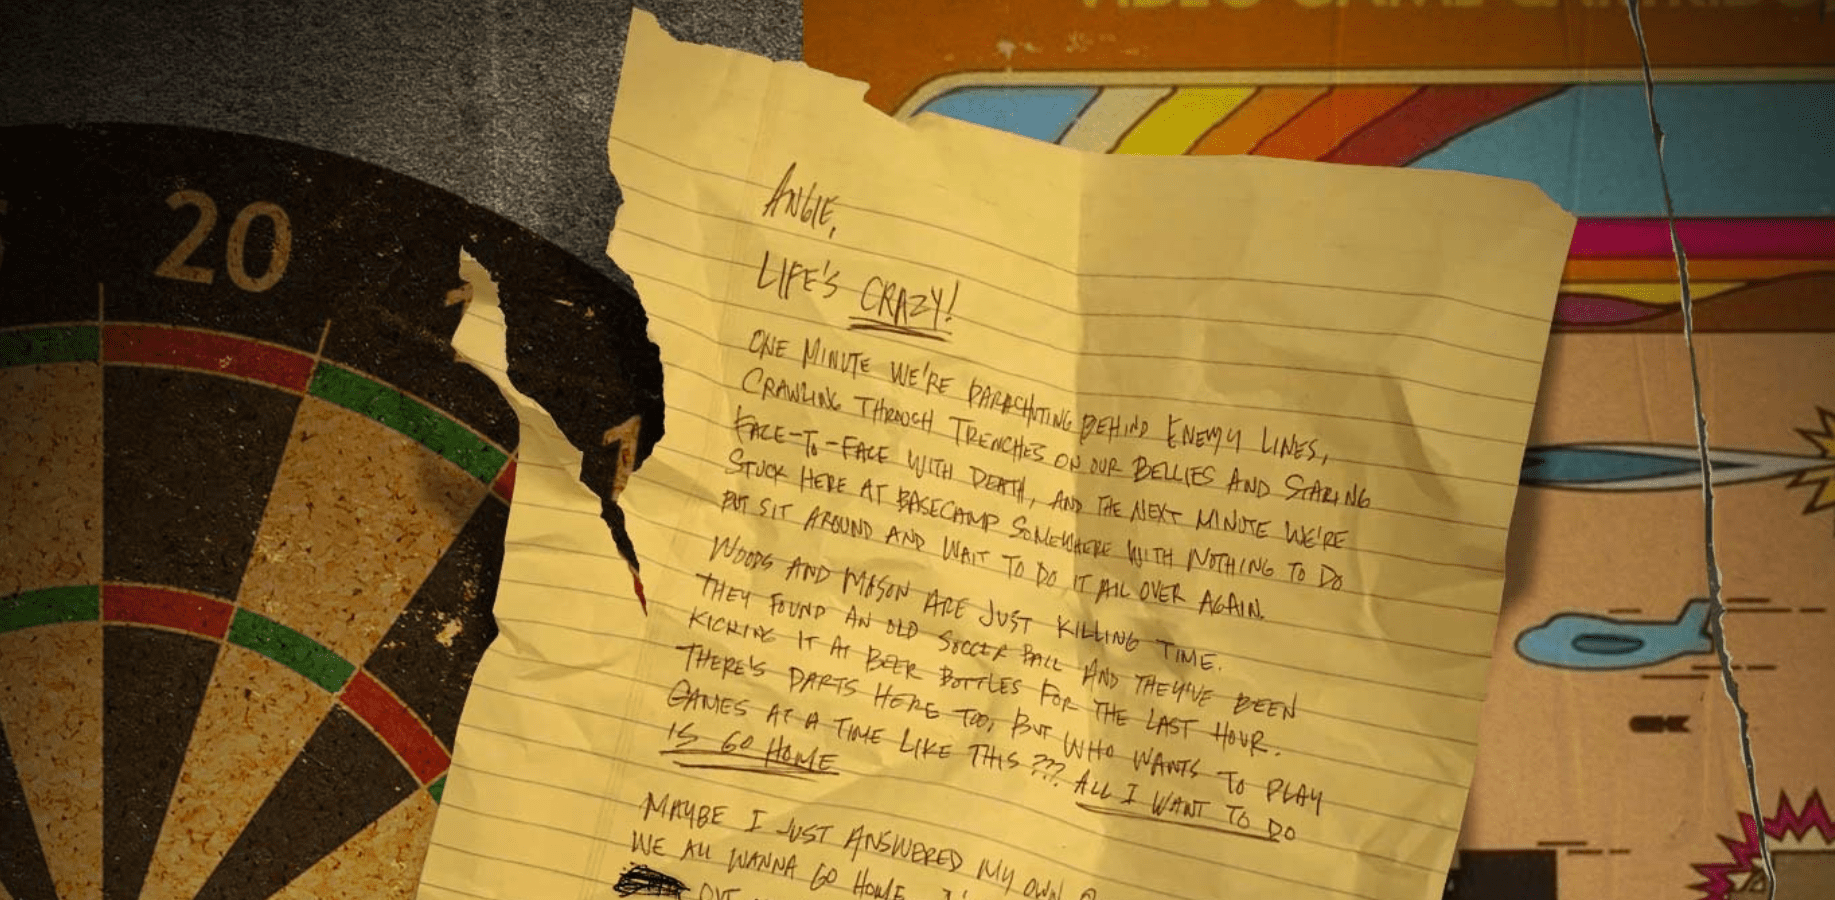 VIDEO GAME CARTRIDGE
20
1
ANGIE,
LIFE'S CRAZY!
ONE MINUTE WE'RE PARACHUTING BEHIND ENEMY LINES,
CRAWLING THROUGH TRENCHES ON OUR BELLIES AND STARING
FACE-TO-FACE WITH DEATH, AND THE NEXT MINUTE WE'RE
STUCK HERE AT BASECAMP SOMEWHERE WITH NOTHING TO DO
BUT SIT AROUND AND WAIT TO DO IT ALL OVER AGAIN.
WOODS AND MASON ARE JUST KILLING TIME.
THEY FOUND AN OLD SOCCER BALL AND THEY'VE BEEN
KICKING IT AT BEER BOTTLES FOR THE LAST HOUR.
THERE'S DARTS HERE TOO, BUT WHO WANTS TO PLAY
GAMES AT A TIME LIKE THIS??? ALL I WANT TO DO
IS GO HOME
MAYBE I JUST ANSWERED MY OWN
WE ALL WANNA GO HOME
OUT